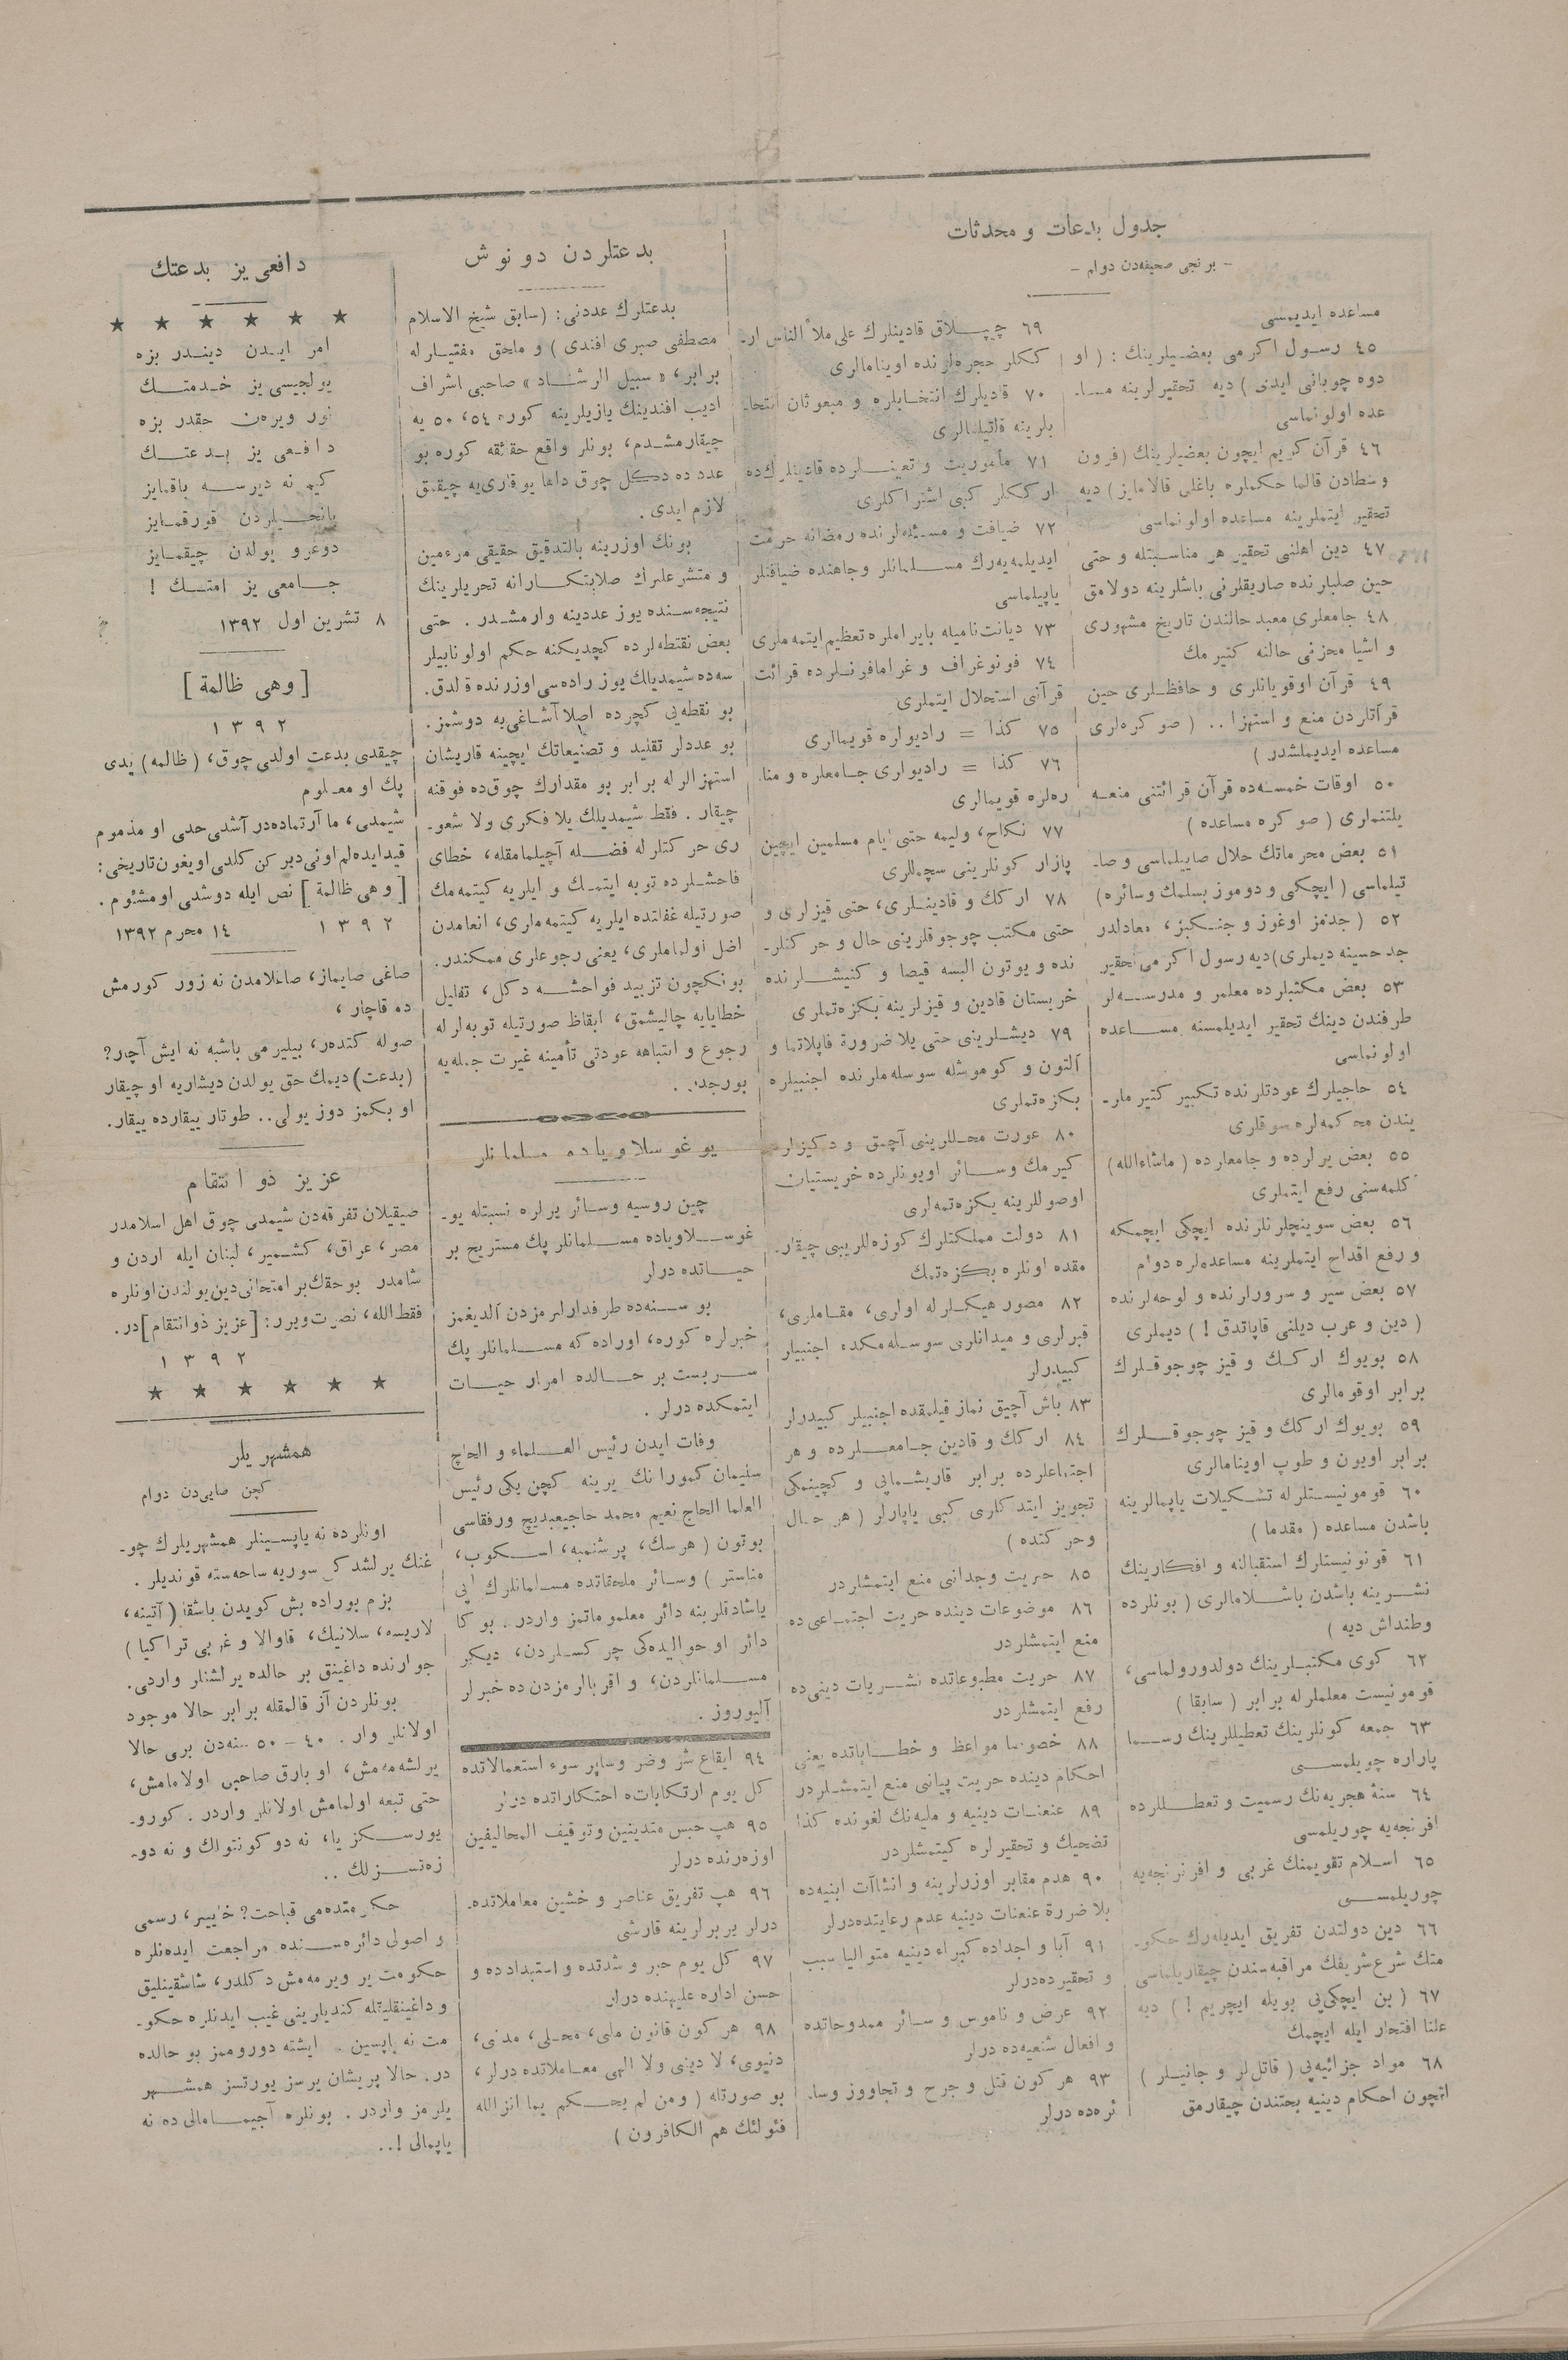 جدول بدعات و محدثات
- برنجی صحیفه‌دن دوام -
مساعده ایدیمسی
٤٥ رسول اکرمی بعضیلرینك : ( او
دوه چوبانی ایدی ) دیه تحقیرلرینه مسا-
عده اولونماسی
٤٦ قرآن کریم ایچون بعضیلرینك (قرون
وسطادن قالما حکملره باغلی قالامایز) دیه
تحقیر ایتملرینه مساعده اولونماسی
٤٧ دین اهلنی تحقیر هر مناسبتله و حتی
حین صلبارنده صاریقلرنی باشلرینه دولامق
٤٨ جامعلری معبد حالندن تاریخ مشهوری
و اشیا مخزنی حالنه کتیرمك
٤٩ قرآن اوقویانلری و حافظلری حین
قرآتلردن منع و استهزا .. ( صوکره‌لری
مساعده ایدیملشدر )
٥٠ اوقات خمسه‌ده قرآن قرائتنی منعه
یلتنماری ( صوکره مساعده )
٥١ بعض محرماتك حلال صاییلماسی و صا-
تیلماسی ( ایچکی و دوموز بسلمك وسائره)
٥٢ ( جدمز اوغوز و جنکیز، معادلدر
جد حسینه دیملری)دیه رسول اکرمی تحقیر
٥٣ بعض مکتبلرده معلمر و مدرسه‌لر
طرفندن دینك تحقیر ایدیلمسنه مساعده
اولونماسی
٥٤ حاجیلرك عودتلرنده تکبیر کتیرمار-
یندن محکمه‌لره سوقلری
٥٥ بعض یرلرده و جامعارده ( ماشاءالله)
کلمه‌سنی رفع ایتملری
٥٦ بعض سوینچلرنلرنده ایچکی ایچمکه
و رفع اقداح ایتملرینه مساعده‌لره دوام
٥٧ بعض سیر و سرورلرنده و لوحه‌لرنده
( دین و عرب دیلنی قاپاتدق ! ) دیملری
٥٨ بویوك ارکك و قیز چوجوقلرك
برابر اوقومالری
٥٩ بویوك ارکك و قیز چوجوقلرك
برابر اویون و طوپ اوینامالری
٦٠ قومونیستلرله تشکیلات یاپمالرینه
باشدن مساعده ( مقدما )
٦١ قونونیستلرك استقبالنه و افکارینك
نشرینه باشدن باشلامالری ( بونلرده
وطنداش دیه )
٦٢ کوی مکتبلرینك دولدورولماسی،
قومونیست معلملرله برابر ( سابقا )
٦٣ جمعه کونلرینك تعطیللرینك رسما
پازاره چویلمسی
٦٤ سنهٔ هجریه‌نك رسمیت و تعطللرده
افرنجه‌یه چوریلمسی
٦٥ اسلام تقویمنك غربی و افرنرنجه‌یه
چوریلمسی
٦٦ دین دولتدن تفریق ایدیله‌رك حکو-
متك شرع شریفك مراقبه‌سندن چیقاریلماسی
٦٧ ( بن ایچکی‌بی بویله ایچریم ! ) دیه
علنا افتخار ایله ایچمك
٦٨ مواد جزائیه‌یی ( قاتل‌لر و جانیلر )
اتچون احکام دینیه بحثندن چیقارمق
٦٩ چیپلاق قادینلرك علی ملأ الناس ار-
ککلر حجره‌لرنده اوینامالری
٧٠ قادیلرك انتخابلره و مبعوثان انتخا-
بلرینه قاتیلمالری
٧١ مأموریت و تعینلرده قادینلرك‌ده
ارککلر کبی اشتراکلری
٧٢ ضیافت و مسـ‌لرنده رمضانه حرمت
ایدیلمه‌یه‌رك مسلمانلر وجاهنده ضیافتلر
یاپیلماسی
٧٣ دیانت نامیله بایراملره تعظیم ایتمه‌ملری
٧٤ فونوغراف و غرامافونلرده قرائت
قرآنی استحلال ایتملری
٧٥ کذا = رادیولره قویمالری
٧٦ کذا = رادیولری جامعلره و منا-
ره‌لره قویمالری
٧٧ نکاح، ولیمه حتی ایام مسلمین ایچین
پازار کونلرینی سچمللری
٧٨ ارکك و قادینلری، حتی قیزلری و
حتی مکتب چوجوقلرینی حال و حرکتلر-
نده و بوتون البسه قیصا و کنیشلرنده
خریستان قادین و قیزلرینه بکزه‌تملری
٧٩ دیشلرینی حتی یلا ضرورة قاپلاتما و
آلتون و کوموشله سوسله‌ملرنده اجنبیلره
بکزه‌تملری
٨٠ عورت محللرینی آچمق و دکیزلر-
کیرمك و سائر اویونلرده خریستیان
اوصوللرینه یکزه‌تمه‌لری
٨١ دولت مملکتلرك کوزه‌للربیی چیقار-
مقده اونلره بکزه‌تمك
٨٢ مصور هیکلرله اولری، مقاملری،
قبرلری و میدانلری سوسله‌مکده اجنبیلر
کبیدرلر
٨٣ باش آچیق نماز قیلمقده اجنبیلر کبیدرلر
٨٤ ارکك و قادین جامعلرده و هر
اجتماعلرده برابر قاریشماپی و کچینمکی
تجویز ایتدکلری کبی یاپارلر ( هر حال
وحرکتده )
٨٥ حریت وجدانی منع ایتمشلردر
٨٦ موضوعات دینده حریت اجتماعی‌ده
منع ایتمشلردر
٨٧ حریت مطبوعاتده نشریات دینی‌ده
رفع ایتمشلردر
٨٨ خصوصا مواعظ و خطاباتده یعنی
احکام دینده حریت پیانی منع ایتمشلردر
٨٩ عنعنات دینیه و ملیه‌نك لغونده کذا
تضحیك و تحقیرلره کیتمشلردر
٩٠ هدم مقابر اوزرلرینه و انشاآت ابنیه‌ده
بلا ضررة عنعنات دینیه عدم رعایتده‌درلر
٩١ آبا و اجداده کبراء دینیه متوالیا سبب
و تحقیرده‌درلر
٩٢ عرض و ناموس و سائر ممدوحاتده
و افعال شنعیه‌ده درلر
٩٣ هرکون قتل و جرح و تجاووز وسا-
ئره‌ده درلر
بدعتلردن دونوش
بدعتلرك عددنی: (سابق شیخ الاسلام
مصطفی صبری افندی ) و ملحق مفتیلرله
برابر، « سبیل الرشاد » صاحبی اشراف
ادیب افندینك یازیلرینه کوره ٥٤، ٥٠ یه
چیقارمشدم، بونلر واقع حقیقه کوره بو
عدد ده دکل چوق داها یوقاری‌یه چیقمق
لازم ایدی .
بونك اوزرینه بالتدقیق حقیقی مرءمین
و متشرعلرك صلابتکارانه تحریلرینك
نتیجه‌سنده یوز عددینه وارمشدر . حتی
بعض نقتطه‌لرده کچدیکنه حکم اولونابیلر
سه‌ده شیمدیلك یوز راده‌سی اوزرنده قلدق.
بو نقطه‌یی کچرده اصلا آشاغی‌یه دوشمز.
بو عددلر تقلید و تصنیعاتك ایچینه قاریشان
استهزالرله برابر بو مقدارك چوق‌ده فوقنه
چیقار . فقط شیمدیلك یلا فکری ولا شعو-
ری حرکتلرله فضله آچیلمامقله، خطای
فاحشلرده توبه ایتمك و ایلریه کیتمه‌مك
صورتیله غفلتده ایلریه کیتمه‌ملری، انعامدن
اضل اولماملری، یعنی رجوعلری ممکندر.
بونکچون تزیید فواحشه دکل، تقلیل
خطایایه چالیشمق، ایقاظ صورتیله توبه‌لرله
رجوع و انتباهه عودتی تأمینه غیرت جمله‌یه
بورجدر .
یوغوسلاویاده مسلمانلر
چین روسیه وسائر یرلره نسبتله یو-
غوسلاویاده مسلمانلر پك مستریح بر
حیاتده درلر
بو سنه‌ده طرفدارلرمزدن آلدیغمز
خبرلره کوره، اوراده‌که مسلمانلر پك
سربست بر حالده امرار حیات
ایتمکده درلر .
وفات ایدن رئیس العلماء و الحاج
سلیمان کمورانك یرینه کچن یکی رئیس
العلما الحاج نعیم محمد حاجیعبدیچ ورفقاسی
بوتون ( هرسك، پرشنمه، اسکوب،
مناستر ) وسائر ملحقاتده مسلمانلرك ایی
یاشادقلرینه دائر معلوماتمز واردر . بوکا
دائر او حوالیده‌کی چرکسلردن، دیکر
مسلمانلردن، و اقربالرمزدن ده خبرلر
آلیوروز .
٩٤ ایقاع شر وضر وسایر سوء استعمالاتده
کل یوم ارتکاباتده احتکاراتده درلر
٩٥ هپ حبس متدینین وتوقیف المحالیفین
اوزه‌رنده درلر
٩٦ هپ تفریق عناصر و خشین معاملاتده-
درلر یربرلرینه قارشی
٩٧ کل یوم جبر و شدتده و استبدادده و
حسن اداره علیهنده درلر
٩٨ هر کون قانون ملی، محلی، مدنی،
دنیوی، لا دینی ولا الهی معاملاتده درلر،
بو صورتله ( ومن لم یحکم بما انزالله
فئولئك هم الکافرون )
دافعی یز بدعتك
★ ★ ★ ★ ★ ★
امر ایدن دیندر بزه
یولجیسی یز خدمتك
نور ویره‌ن حقدر بزه
دافعی یز بدعتك
کیم نه دیرسه باقمایز
یانحیلردن قورقمایز
دوغرو یولدن چیقمایز
جامعی یز امتك !
٨ تشرین اول ١٣٩٢
[ وهی ظالمة ]
١٣٩٢
چیقدی بدعت اولدی چوق، ( ظالمه) یدی
پك او معلوم
شیمدی، ما آرتماده‌در آشدی حدی او مذموم
قیدایده‌لم اونی دیرکن کلدی اویغون تاریخی:
[ وهی ظالمة ] نص ایله دوشدی او مشئوم .
١٣٩٢ ١٤ محرم ١٣٩٢
صاغی صایماز، صاغلامدن نه زور کورمش
ده قاچار ،
صوله کتده‌ر، بیلیرمی باشبه نه ایش آچر؟
(بدعت) دیمك حق یولدن دیشاریه او چیقار
او بکمز دوز یولی.. طوتار ییقارده ییقار.
عزیز ذو انتقام
صیقیلان تفرقه‌دن شیمدی چوق اهل اسلامدر
مصر، عراق، کشمیر، لبنان ایله اردن و
شامدر بوحقك بر امتحانی دین یولندن اونلره
فقط الله، نصرت ویرر: [عزیز ذوانتقام]در.
١٣٩٢
★ ★ ★ ★ ★ ★
همشهریلر
کچن صایی‌دن دوام
اونلرده نه یاپسینلر همشهریلرك چو-
غنك یرلشدکی سوریه ساحه‌سنه قوندیلر .
بزم بوراده بش کویدن باشقا ( آتینه،
لاریسه، سلانیك، قاوالا و غربی تراکیا )
جوارنده داغینق بر حالده یرلشنلر واردی.
بونلردن آز قالمقله برابر حالا موجود
اولانلر وار . ٤٠ - ٥٠ سنه‌دن بری حالا
یرلشه‌مه‌مش، او بارق صاحبی اولامامش،
حتی تبعه اولمامش اولانلر واردر . کورو-
یورسکز یا، نه دوکونتولك و نه دو-
زه‌نسزلك ..
حکومتده‌می قباحت؟ خاییر، رسمی
و اصولی دائره‌سنده مراجعت ایده‌نلره
حکومت یر ویرمه‌مش دکلدر، شاشقینلیق
و داغینقلیقله کندیلرینی غیب ایدنلره حکو-
مت نه یاپسین . ایشته دورومز بو حالده
در. حالا پریشان یرسز یورتسز همشهر
یلرمز واردر . بونلره آجیمامالی ده نه
یاپمالی !..